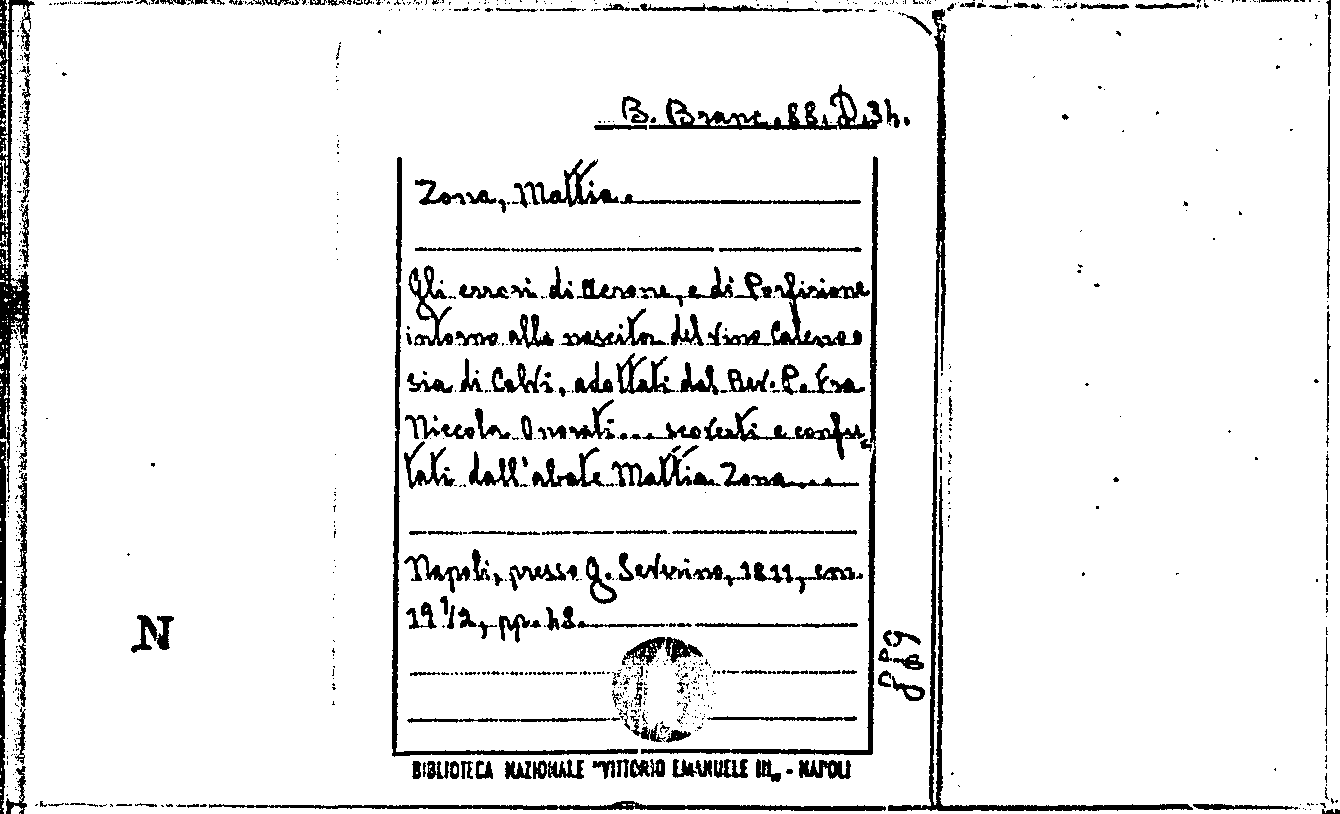 B. Branc. 88. D. 34.
Zona, Mattia.
Gli errori di Acrone, e di Porfirione
intorno alla nascita del vino Caleno o
sia di Calvi, adottati dal Rev. P. Fra
Niccola Onorati... scoverti e confu-
tati dall'abate Mattia Zona...
Napoli, presso G. Severino, 1811, cm.
19 1/2, pp. 48.
N
BIBLIOTECA NAZIONALE "VITTORIO EMANUELE III„ - NAPOLI